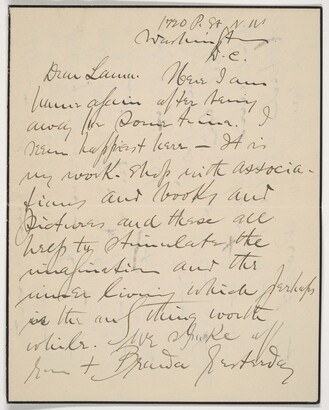 1720 P. St. N.W.
Washington
D.C.
Dear Laura. Here I am
home again after being
away for some time. I
seem happiest here – It is
my work-shop with associa-
tions and books and
pictures and these all
help to stimulate the
imagination and the
inner living which perhaps
is the only thing worth
while. We spoke of
you + Brenda yesterday